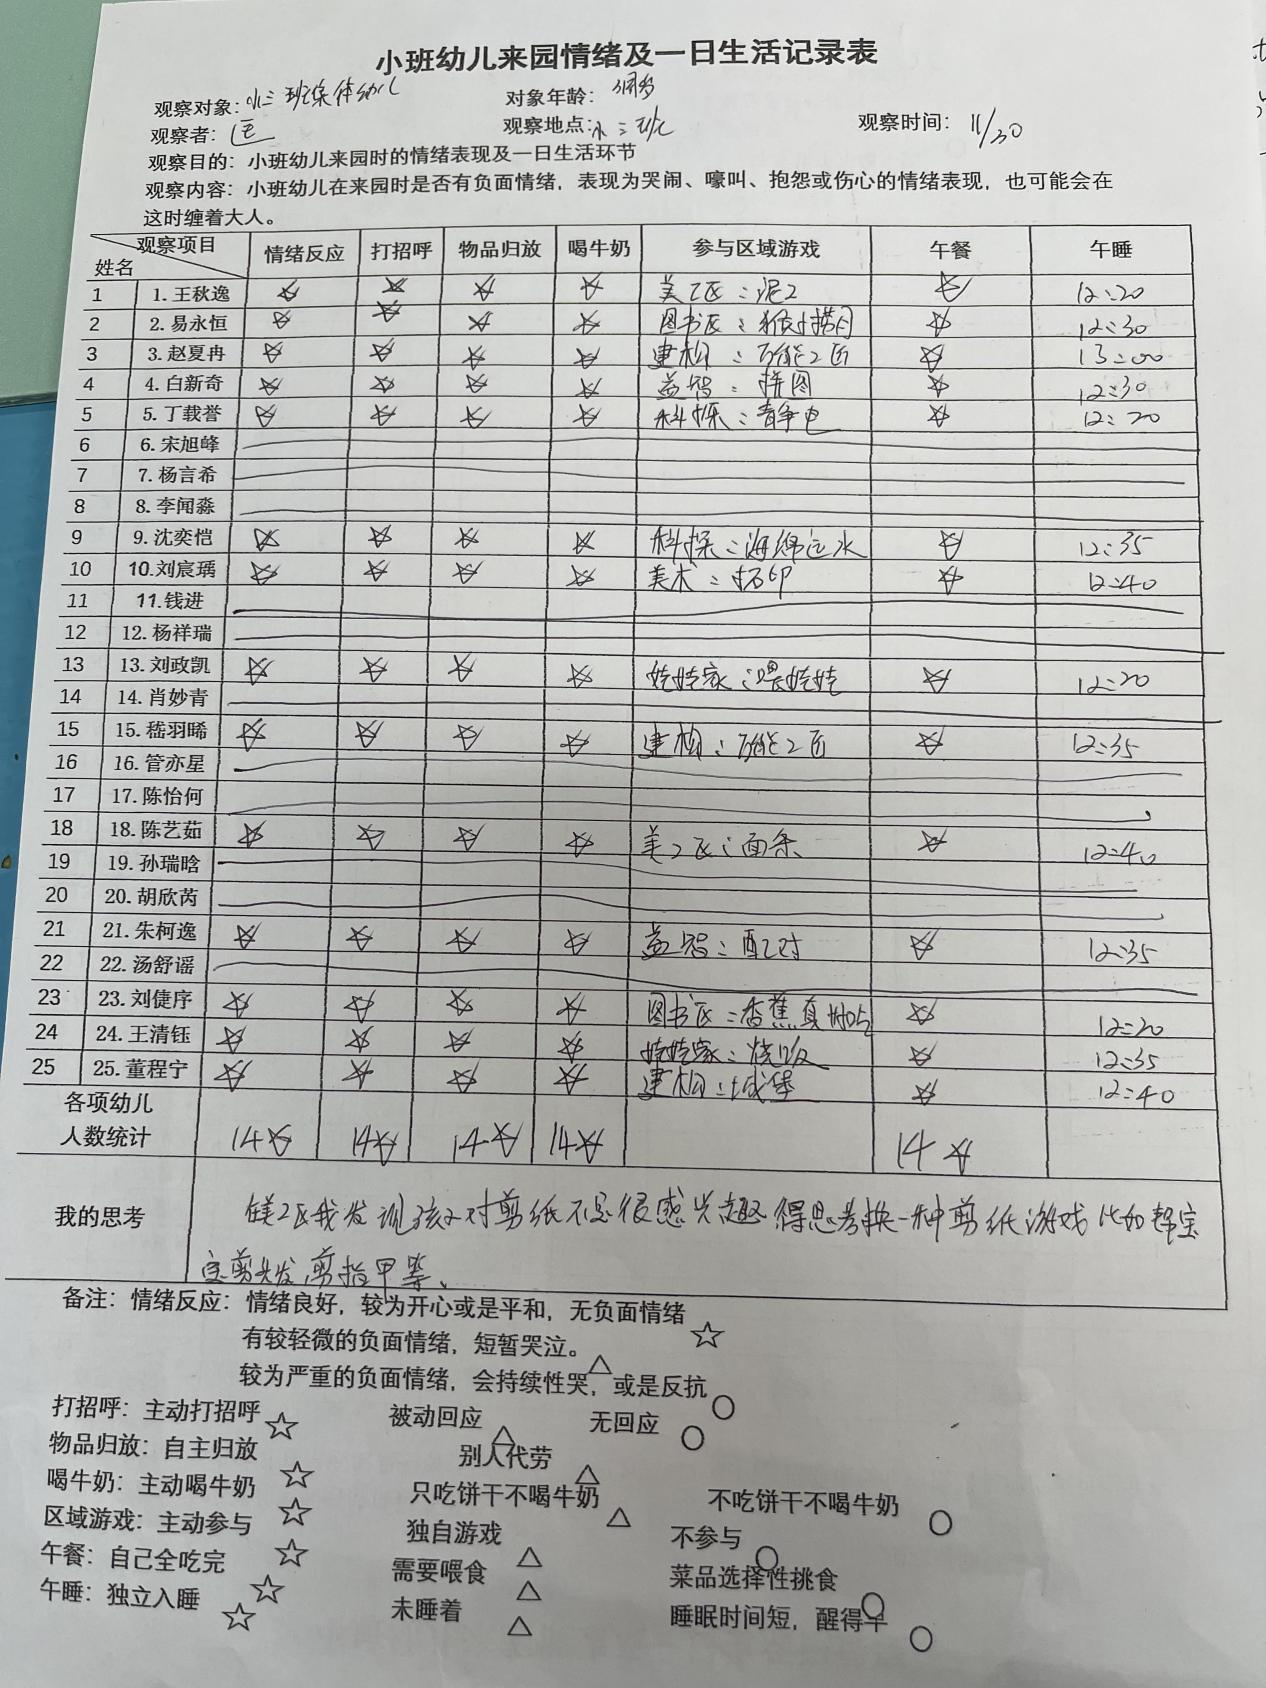 小班幼儿来园情绪及一日生活记录表
观察对象：小三班集体幼儿 对象年龄：3周岁
观察者：匡 观察地点：小三班 观察时间：11/30
观察目的：小班幼儿来园时的情绪表现及一日生活环节
观察内容：小班幼儿在来园时是否有负面情绪，表现为哭闹、嚎叫、抱怨或伤心的情绪表现，也可能会在
这时缠着大人。
观察项目 姓名 情绪反应 打招呼 物品归放 喝牛奶 参与区域游戏 午餐 午睡
1 1.王秋逸 ☆ ☆ ☆ ☆ 美工区：泥工 ☆ 12:20
2 2.易永恒 ☆ ☆ ☆ ☆ 图书区：猴子捞月 ☆ 12:30
3 3.赵夏冉 ☆ ☆ ☆ ☆ 建构：万能工匠 ☆ 13:00
4 4.白新奇 ☆ ☆ ☆ ☆ 益智：拼图 ☆ 12:30
5 5.丁载誉 ☆ ☆ ☆ ☆ 科探：静电 ☆ 12:20
6 6.宋旭峰
7 7.杨言希
8 8.李闻淼
9 9.沈奕恺 ☆ ☆ ☆ ☆ 科探：海绵运水 ☆ 12:35
10 10.刘宸瑀 ☆ ☆ ☆ ☆ 美术：拓印 ☆ 12:40
11 11.钱进
12 12.杨祥瑞
13 13.刘政凯 ☆ ☆ ☆ ☆ 娃娃家：喂娃娃 ☆ 12:20
14 14.肖妙青
15 15.嵇羽晞 ☆ ☆ ☆ ☆ 建构：万能工匠 ☆ 12:35
16 16.管亦星
17 17.陈怡何
18 18.陈艺茹 ☆ ☆ ☆ ☆ 美工区：面条 ☆ 12:40
19 19.孙瑞晗
20 20.胡欣芮
21 21.朱柯逸 ☆ ☆ ☆ ☆ 益智：配对 ☆ 12:35
22 22.汤舒谣
23 23.刘倢序 ☆ ☆ ☆ ☆ 图书区：香蕉真好吃 ☆ 12:20
24 24.王清钰 ☆ ☆ ☆ ☆ 娃娃家：烧饭 ☆ 12:35
25 25.董程宁 ☆ ☆ ☆ ☆ 建构：城堡 ☆ 12:40
各项幼儿
人数统计 14☆ 14☆ 14☆ 14☆ 14☆
我的思考 美工区我发现孩子对剪纸不是很感兴趣 得思考换一种剪纸游戏 比如帮宝
宝剪头发 剪指甲等、
备注：情绪反应：情绪良好，较为开心或是平和，无负面情绪 ☆
有较轻微的负面情绪，短暂哭泣。 △
较为严重的负面情绪，会持续性哭，或是反抗 ○
打招呼：主动打招呼 ☆ 被动回应 △ 无回应 ○
物品归放：自主归放 ☆ 别人代劳 △
喝牛奶：主动喝牛奶 ☆ 只吃饼干不喝牛奶 △ 不吃饼干不喝牛奶 ○
区域游戏：主动参与 ☆ 独自游戏 △ 不参与 ○
午餐：自己全吃完 ☆ 需要喂食 △ 菜品选择性挑食 ○
午睡：独立入睡 ☆ 未睡着 △ 睡眠时间短，醒得早 ○